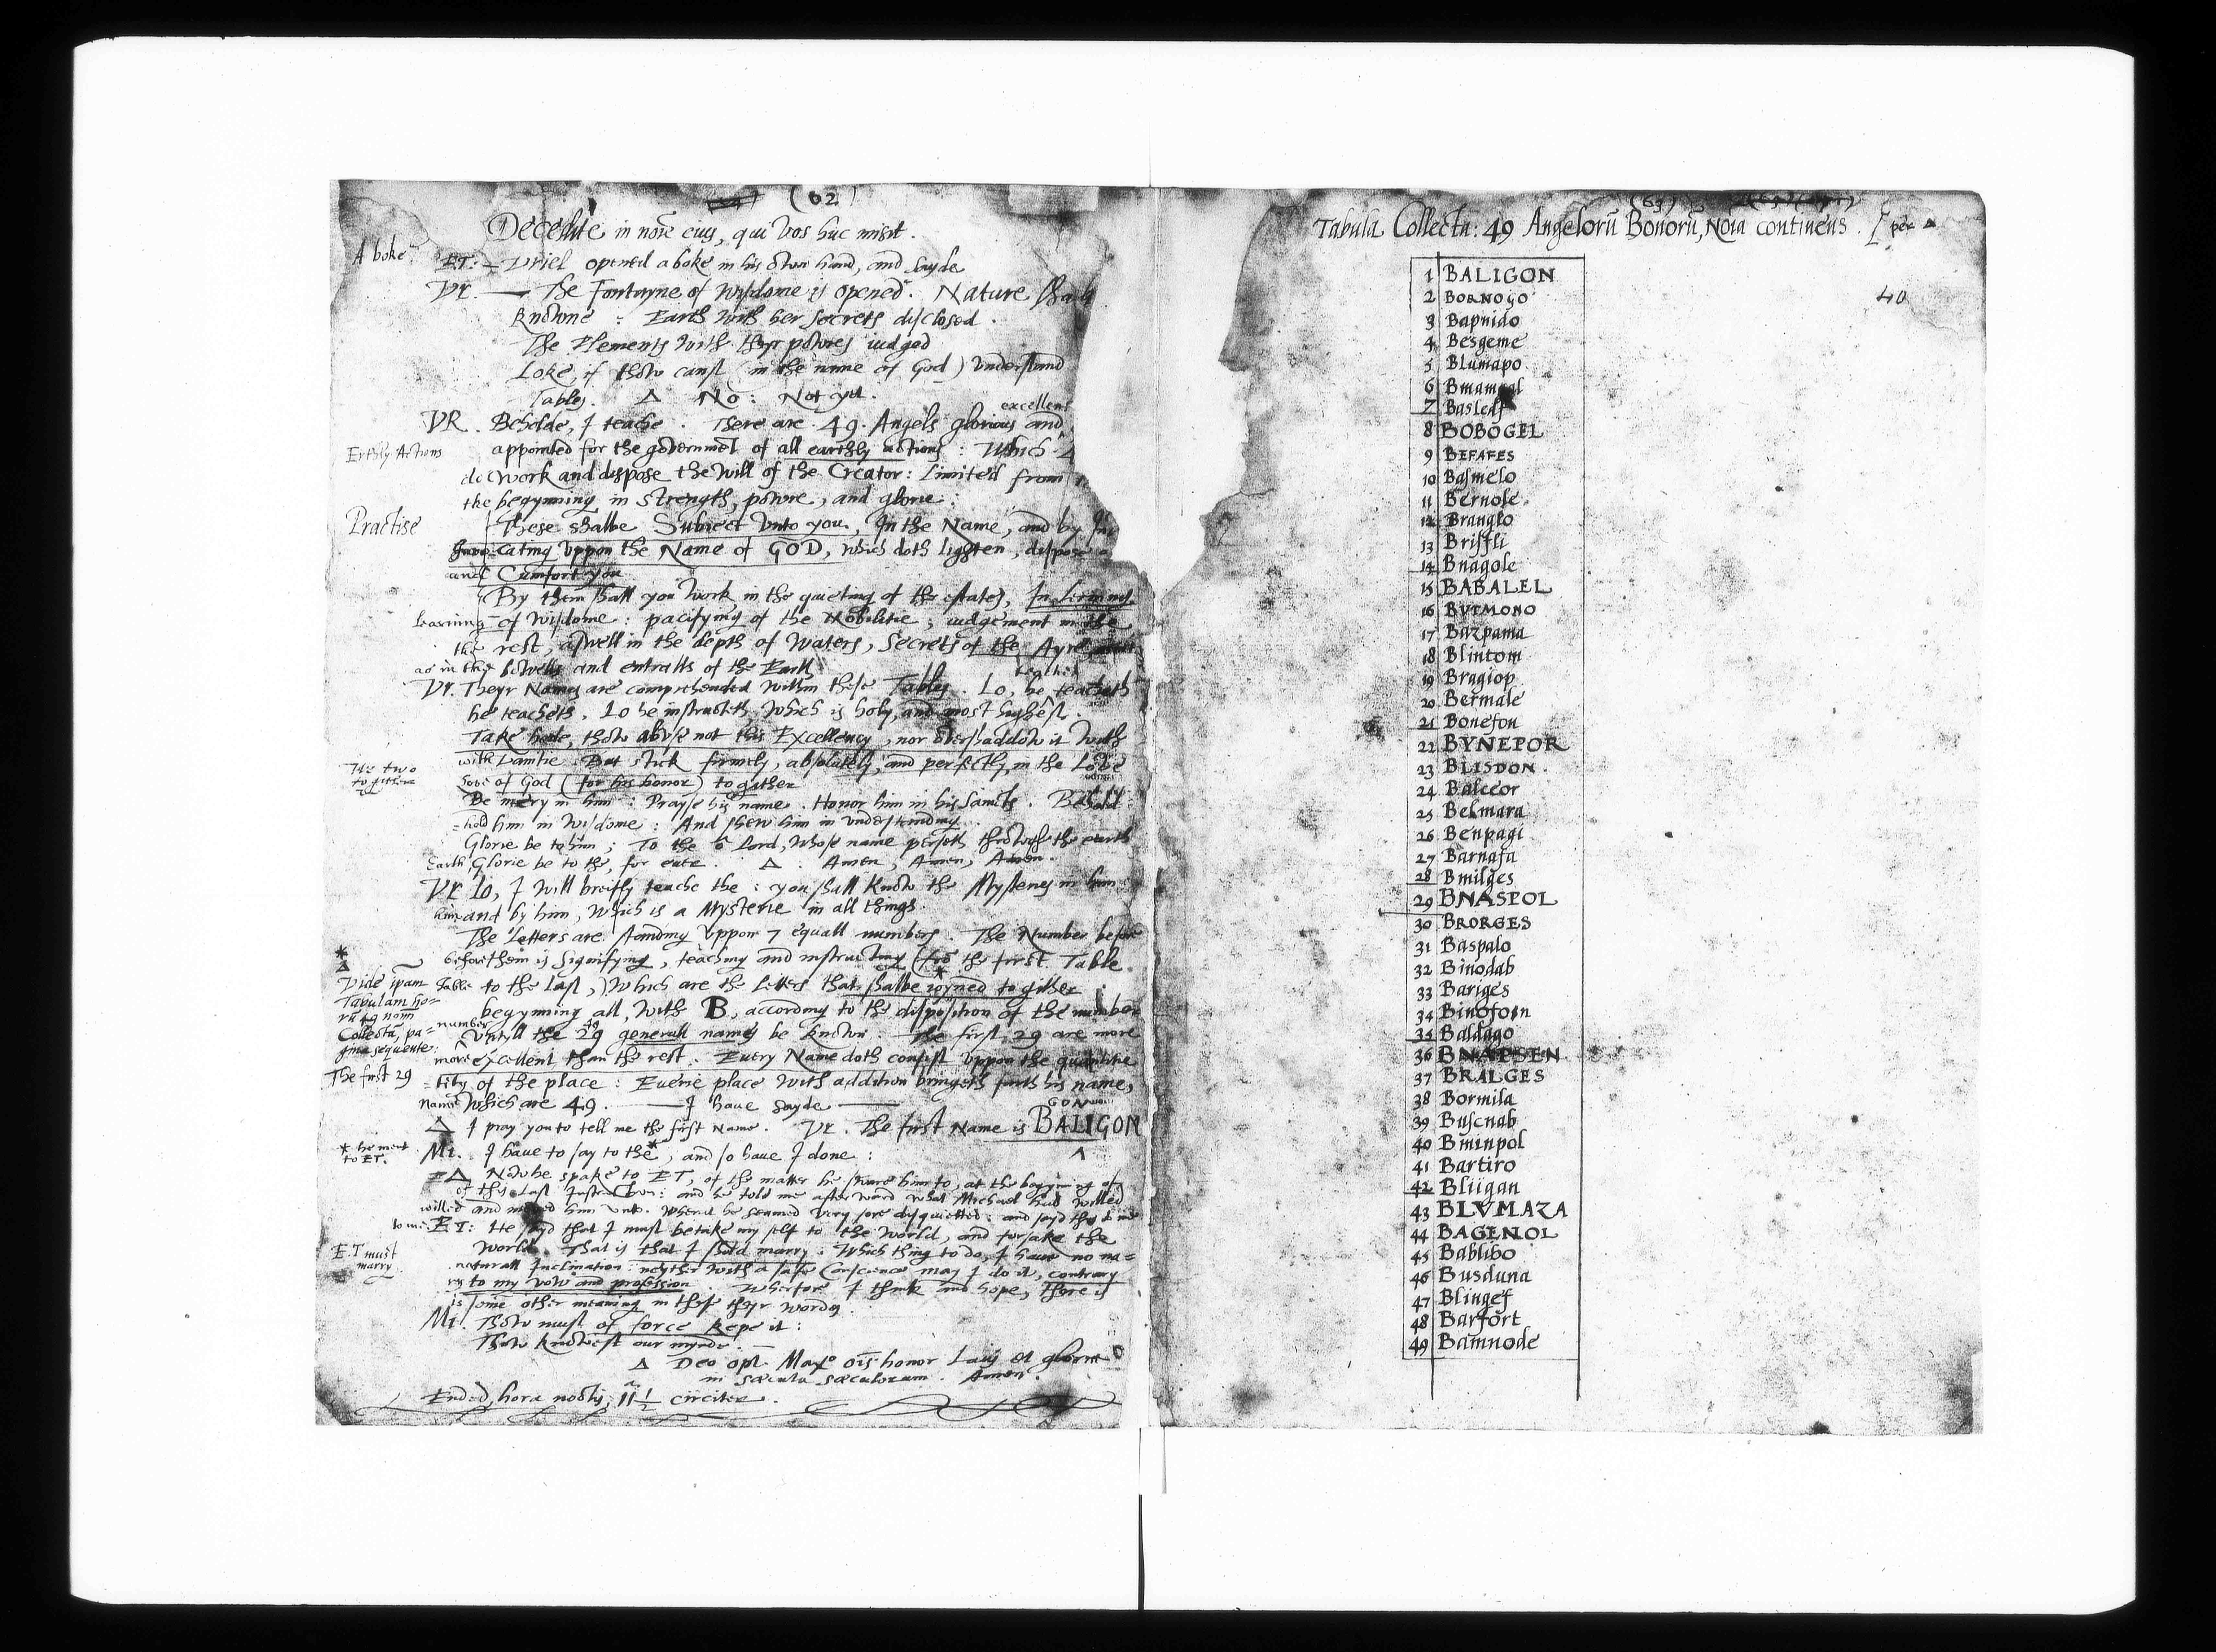 (62)
Decedite in no̅i̅e eius, qui vos huc misit.
A boke.
ET: — Vriel opened a boke in his own hand, and sayde
Vr. — The Fontayne of wisdome is opened. Nature shall
knowne: Earth with her secrets disclosed.
The Elements with theyr powres iudged
Loke, if thow canst (in the name of God) vnderstand
Tables. Δ No: Not yet.
VR. Beholde, I teache. There are 49. Angels glorious and excellent
Erthly Actions
appointed for the government of all earthly actions: Which
do work and dispose the will of the Creator: limited from
the begynning in strength, powre, and glorie:
Practise
These shalbe Subiect vnto you, In the Name, and by
cating vppon the Name of GOD, which doth lighten, dispose
and Cumfort you
By them shall you work in the quieting of the estates, In
learning of wisdome: pacifying of the Nobilitie; iudgement in the
the rest, aswell in the depth of waters, Secrets of the Ayre,
as in the bowells and entralls of the Earth
Vr. Theyr Names are comprehended within these Tables. Lo, he teacheth
he teacheth. Lo he instructeth. Which is holy, and most highest.
Take hede, thow abvse not this Excellency, nor overshaddow it with
with Vanitie. But stick firmely, absolutely, and perfectly, in the Love
The two
to gither
love of God (for his honor) to gither
Be mery in him: Prayse his name. Honor him in his Saincts. Behold
hold him in wisdome: And shew him in vnderstanding.
Glorie be to him; To the ô Lord, whose name perseth throwgh the earth
Earth Glorie be to the, for euer. Δ. Amen, Amen, Amen.
Vr. Lo, I will breifly teache the: you shall know the Mysteries in him
him and by him, Which is a Mysterie in all things.
The Letters are standing vppon 7 equall numbers. The Number before
before them is signifying, teaching and instructing (fro̅ the first Table
* Δ
Vide ipam
Tabulam ho-
ru̅ 49 noi̅m
Collecta̅, pa=
gina sequente.
Table to the last,) Which are the Letters that shalbe ioyned to gither
begynning all, with B, according to the disposition of the number
number, Vntyll the 29 49 generall names be known. The first 29 are more
more excellent than the rest. Euery Name doth consist vppon the quantitie
The first 29
=tity of the place: Euerie place with addition bringeth furth his name,
name Which are 49. — I haue sayde —
Δ I pray you to tell me the first Name. Vr. The first Name is BALIGON
* he ment
to ET.
Mi. I haue to say to the*, and so haue I done:
Δ Now he spake to ET, of the matter he sware him to, at the begynning of
of this last Instruction: and he told me afterward what Michael had willed
willed and moved him vnto. Wherat he seamed very sore disquietted: and sayd this to me
to me. ET: He sayd that I must betake my self to the world, and forsake the
E.T must
marry
world. That is that I shold marry. Which thing to do, I haue no na=
naturall Inclination: neyther with a safe Conscience may I do it, contrary
ry to my vow and profession. Wherfore I think and hope, there is
is some other meaning in these theyr wordes.
Mi. Thow must of force kepe it:
Thow knowest our mynde.
Δ Deo opt. Maxo oi̅s honor Laus et gloria
in sæcula sæculorum. Amen.
Ended, hora noctis, 11 1/2 a circiter.
(63)
Tabula Collecta: 49 Angeloru̅ Bonoru̅, No̅i̅a continens. [per Δ
40
1 BALIGON
2 BORNOGO
3 Bapnido
4 Besgeme
5 Blumapo
6 Bmamgal
7 Basledf
8 BOBOGEL
9 BEFAFES
10 Basmelo
11 Bernole
12 Branglo
13 Brisfli
14 Bnagole
15 BABALEL
16 BVTMONO
17 Bazpama
18 Blintom
19 Bragiop
20 Bermale
21 Bonefon
22 BYNEPOR
23 BLISDON.
24 Balceor
25 Belmara
26 Benpagi
27 Barnafa
28 Bmilges
29 BNASPOL
30 BRORGES
31 Baspalo
32 Binodab
33 Bariges
34 Binofon
35 Baldago
36 BNAPSEN
37 BRALGES
38 Bormila
39 Buscnab
40 Bminpol
41 Bartiro
42 Bliigan
43 BLVMAZA
44 BAGENOL
45 Bablibo
46 Busduna
47 Blingef
48 Barfort
49 Bamnode